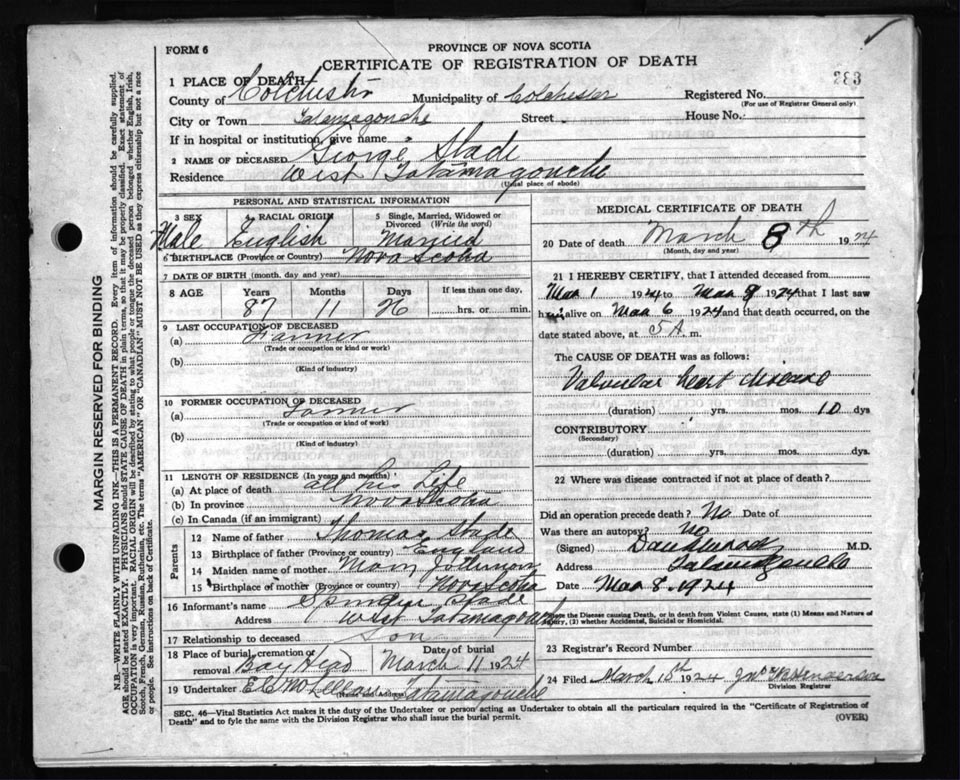 FORM 6
PROVINCE OF NOVA SCOTIA
CERTIFICATE OF REGISTRATION OF DEATH
283
1 PLACE OF DEATH
County of Colchester Municipality of Colchester Registered No.
(For use of Registrar General only)
City or Town Tatamagouche Street House No.
If in hospital or institution, give name
2 NAME OF DECEASED George Slade
Residence West Tatamagouche
(Usual place of abode)
PERSONAL AND STATISTICAL INFORMATION
3 SEX 4 RACIAL ORIGIN 5 Single, Married, Widowed or Divorced (Write the word)
Male English Married
6 BIRTHPLACE (Province or Country) Nova Scotia
7 DATE OF BIRTH (month, day and year)
8 AGE Years Months Days If less than one day,
87 11 26 hrs. or min.
9 LAST OCCUPATION OF DECEASED
(a) Farmer
(Trade or occupation or kind or work)
(b)
(Kind of industry)
10 FORMER OCCUPATION OF DECEASED
(a) Farmer
(Trade or occupation or kind or work)
(b)
(Kind of industry)
11 LENGTH OF RESIDENCE (In years and months)
(a) At place of death all his Life
(b) In province Nova Scotia
(c) In Canada (if an immigrant)
Parents
12 Name of father Thomas Slade
13 Birthplace of father (Province or country) England
14 Maiden name of mother
15 Birthplace of mother (Province or country) Nova Scotia
16 Informant's name Slade
Address West Tatamagouche
17 Relationship to deceased Son
18 Place of burial, cremation or removal Bay Head Date of burial March 11 1924
19 Undertaker Tatamagouche
(Name and Address)
MEDICAL CERTIFICATE OF DEATH
20 Date of death March 8th 1924
(Month, day and year)
21 I HEREBY CERTIFY, that I attended deceased from
Mar 1 1924 to Mar 8 1924 that I last saw
him alive on Mar 6 1924 and that death occurred, on the
date stated above, at 5 A. m.
The CAUSE OF DEATH was as follows:
Valvular heart disease
(duration) yrs. mos. 10 dys
CONTRIBUTORY
(Secondary)
(duration) yrs. mos. dys.
22 Where was disease contracted if not at place of death?
Did an operation precede death? No Date of
Was there an autopsy? No
(Signed) M.D.
Address Tatamagouche
Date Mar 8. 1924
State the Disease causing Death, or in death from Violent Causes, state (1) Means and Nature of
Injury, (2) whether Accidental, Suicidal or Homicidal.
23 Registrar's Record Number
24 Filed March 15th 1924 Henderson
Division Registrar
SEC. 46—Vital Statistics Act makes it the duty of the Undertaker or person acting as Undertaker to obtain all the particulars required in the "Certificate of Registration of
Death" and to fyle the same with the Division Registrar who shall issue the burial permit.
(OVER)
MARGIN RESERVED FOR BINDING
N.B.—WRITE PLAINLY WITH UNFADING INK—THIS IS A PERMANENT RECORD. Every item of information should be carefully supplied.
AGE should be stated EXACTLY. PHYSICIANS should STATE CAUSE OF DEATH in plain terms, so that it may be properly classified. Exact statement of
OCCUPATION is very important. RACIAL ORIGIN will be described by stating to what people or tongue the deceased person belonged whether English, Irish,
Scotch, French, German, Russian, Ruthenian, etc. The terms "AMERICAN" OR "CANADIAN" MUST NOT BE USED as they express citizenship but not a race
or people. See instructions on back of Certificate.